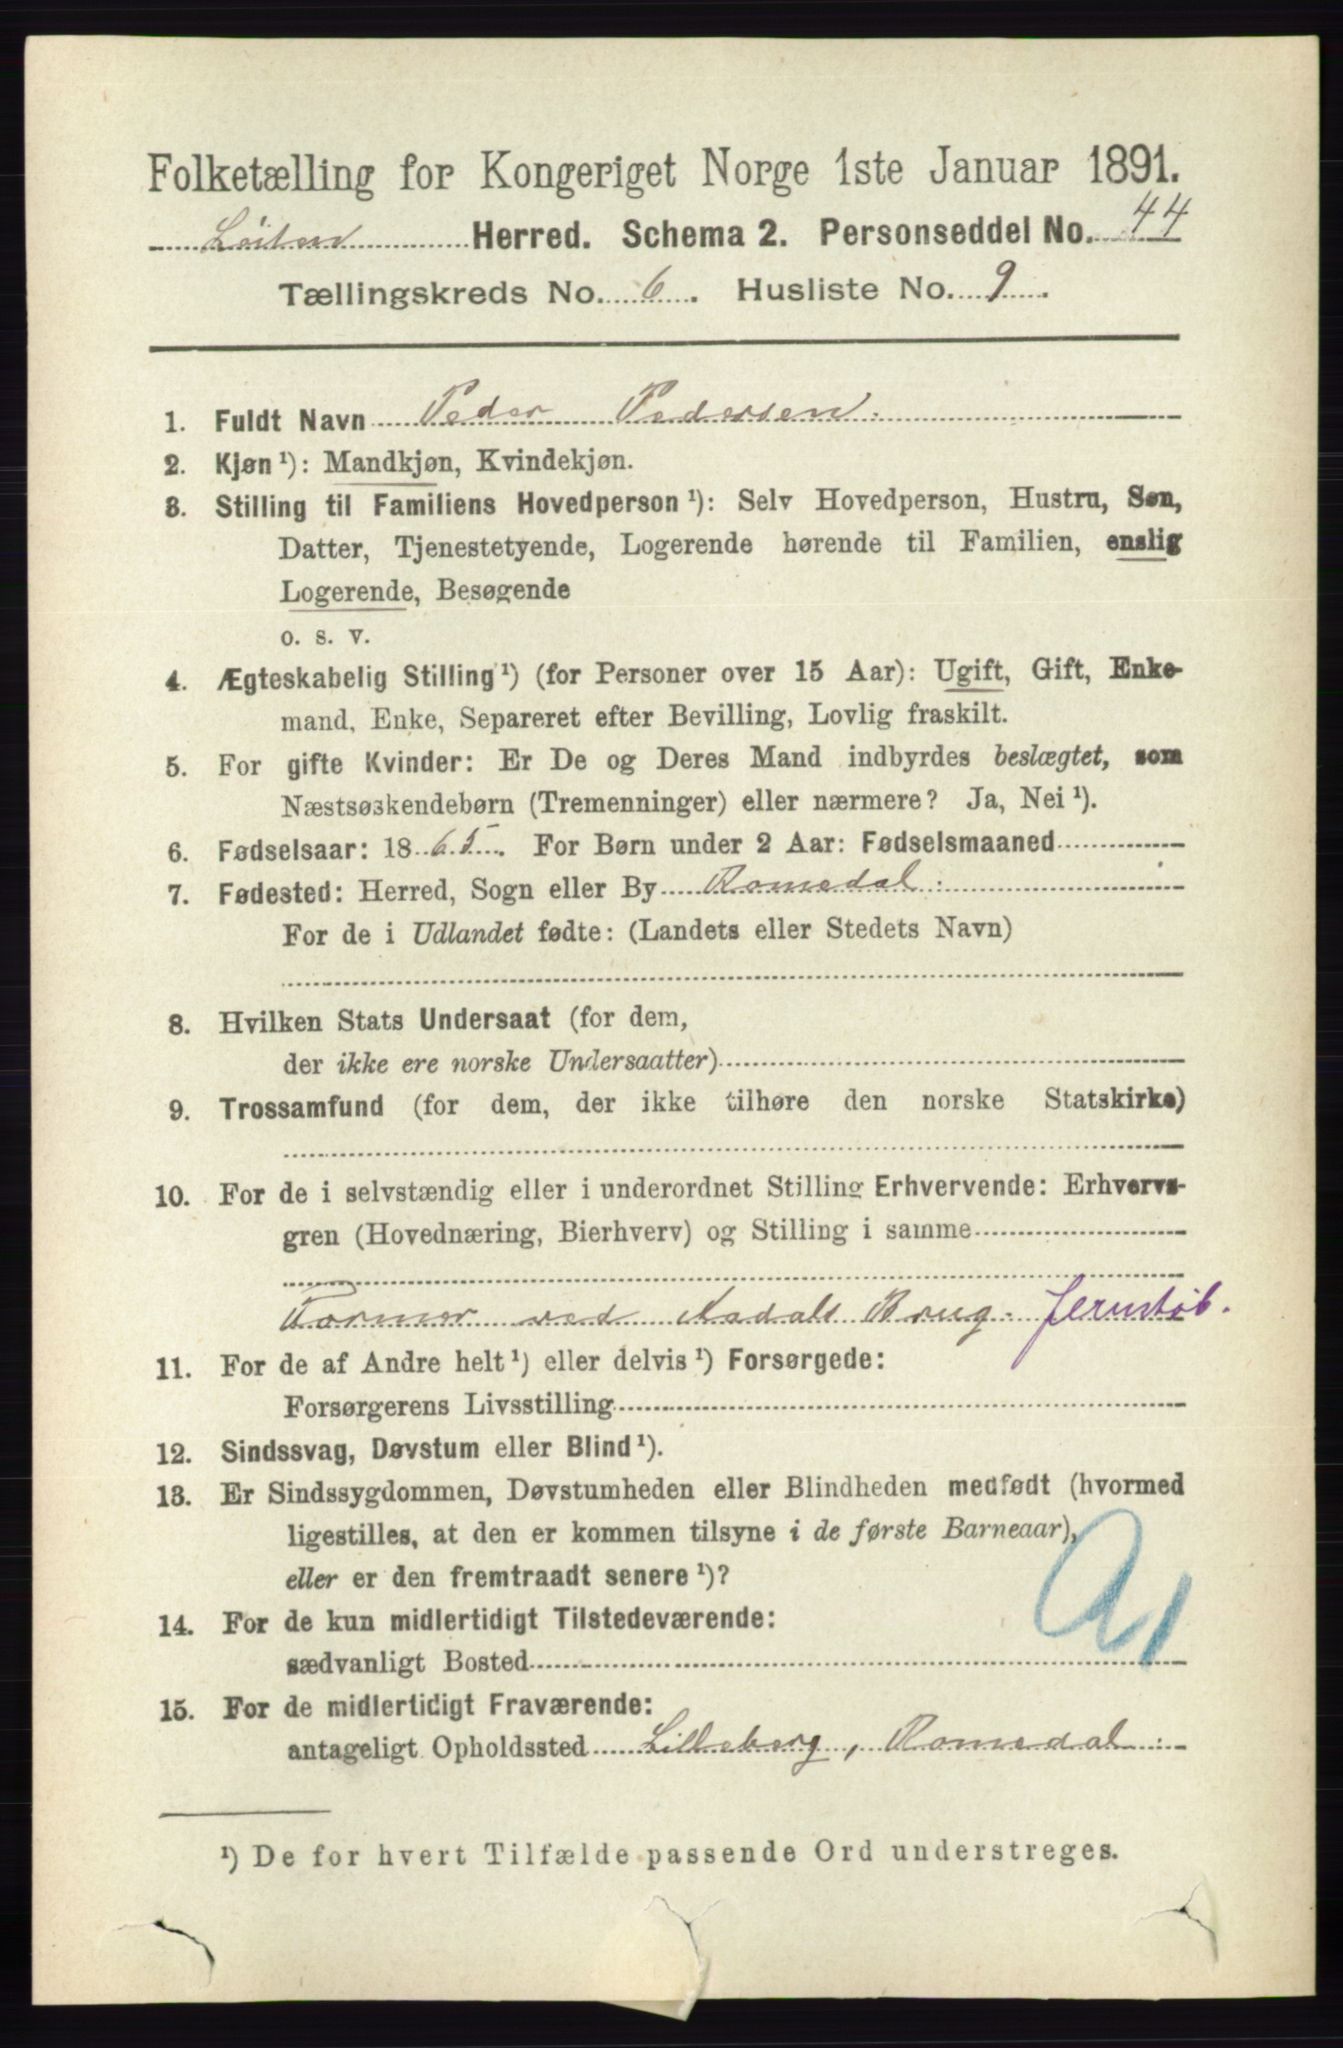 Folketælling for Kongeriget Norge 1ste Januar 1891.
Løiten Herred. Schema 2. Personseddel No. 44
Tællingskreds No. 6. Husliste No. 9.
1. Fuldt Navn Peder Pedersen.
2. Kjøn ¹): Mandkjøn, Kvindekjøn.
3. Stilling til Familiens Hovedperson ¹): Selv Hovedperson, Hustru, Søn,
Datter, Tjenestetyende, Logerende hørende til Familien, enslig
Logerende, Besøgende
o. s. v.
4. Ægteskabelig Stilling ¹) (for Personer over 15 Aar): Ugift, Gift, Enke-
mand, Enke, Separeret efter Bevilling, Lovlig fraskilt.
5. For gifte Kvinder: Er De og Deres Mand indbyrdes beslægtet, som
Næstsøskendebørn (Tremenninger) eller nærmere? Ja, Nei ¹).
6. Fødselsaar: 1865. For Børn under 2 Aar: Fødselsmaaned
7. Fødested: Herred, Sogn eller By Romedal.
For de i Udlandet fødte: (Landets eller Stedets Navn)
8. Hvilken Stats Undersaat (for dem,
der ikke ere norske Undersaatter)
9. Trossamfund (for dem, der ikke tilhøre den norske Statskirke)
10. For de i selvstændig eller i underordnet Stilling Erhvervende: Erhvervs-
gren (Hovednæring, Bierhverv) og Stilling i samme
Former ved Aadals Brug. Jernstøb.
11. For de af Andre helt ¹) eller delvis ¹) Forsørgede:
Forsørgerens Livsstilling
12. Sindssvag, Døvstum eller Blind ¹).
13. Er Sindssygdommen, Døvstumheden eller Blindheden medfødt (hvormed
ligestilles, at den er kommen tilsyne i de første Barneaar),
eller er den fremtraadt senere ¹)?
14. For de kun midlertidigt Tilstedeværende:
sædvanligt Bosted
15. For de midlertidigt Fraværende:
antageligt Opholdssted Lilleberg, Romedal.
¹) De for hvert Tilfælde passende Ord understreges.